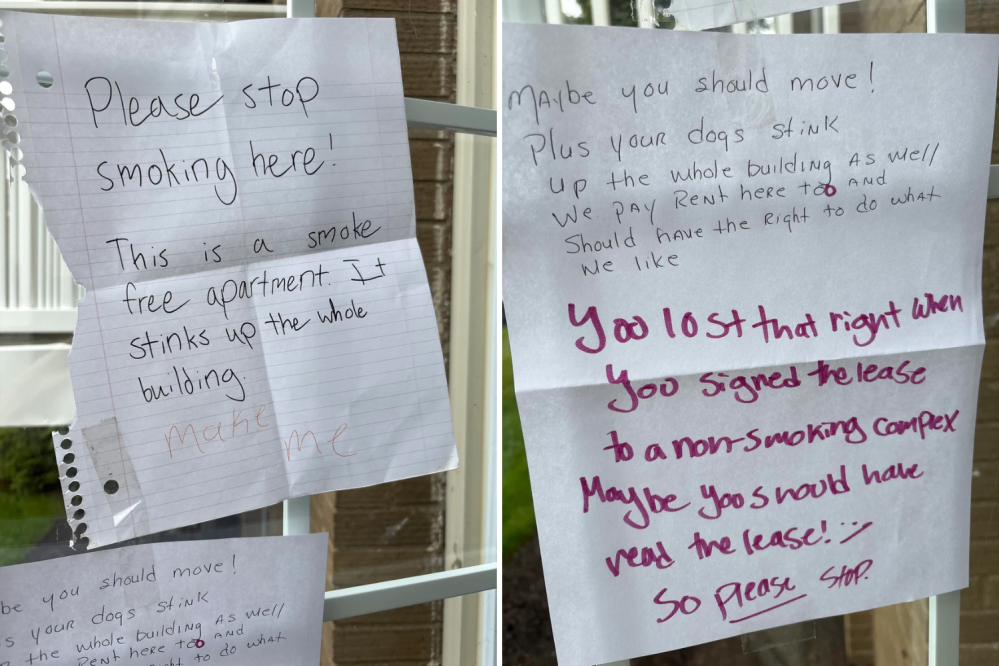 Please stop
smoking here!
This is a smoke
free apartment. It
stinks up the whole
building.
make me
be you should move!
s your dogs stink
the whole building As well
Rent here too And
ht to do what
MAybe you should move!
Plus your dogs stink
up the whole building As well
We pAy Rent here too And
Should hAve the Right to do what
we like
You lost that right when
You signed the lease
to a non-smoking complex
Maybe you should have
read the lease! :)
So please stop.